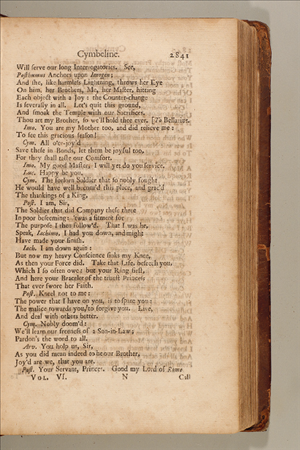 Cymbeline. 2841
Will serve our long Interrogatories. See,
Posthumus Anchors upon Imogen;
And she, like harmless Lightning, throws her Eye
On him, her Brothers, Me, her Master, hitting
Each object with a Joy: the Counter-change
Is severally in all. Let's quit this ground,
And smoak the Temple with our Sacrifices.
Thou art my Brother, so we'll hold thee ever. [To Bellarius.
Imo. You are my Mother too, and did relieve me:
To see this gracious season!
Cym. All o'er-joy'd
Save these in Bonds, let them be joyful too,
For they shall taste our Comfort.
Imo. My good Master, I will yet do you service.
Luc. Happy be you.
Cym. The forlorn Soldier that so nobly fought,
He would have well becom'd this place, and grac'd
The thankings of a King.
Post. I am, Sir,
The Soldier that did Company these three
In poor beseeming: 'twas a fitment for
The purpose I then follow'd. That I was he,
Speak, Iachimo, I had you down, and might
Have made your finish.
Iach. I am down again:
But now my heavy Conscience sinks my Knee,
As then your Force did. Take that Life, beseech you,
Which I so often owe: but your Ring first,
And here your Bracelet of the truest Princess
That ever swore her Faith.
Post. Kneel not to me:
The power that I have on you, is to spare you:
The malice towards you, to forgive you. Live,
And deal with others better.
Cym. Nobly doom'd:
We'll learn our freeness of a Son-in-Law;
Pardon's the word to all.
Arv. You holp us, Sir,
As you did mean indeed to be our Brother,
Joy'd are we, that you are.
Post. Your Servant, Princes. Good my Lord of Rome
VOL. VI. N Call